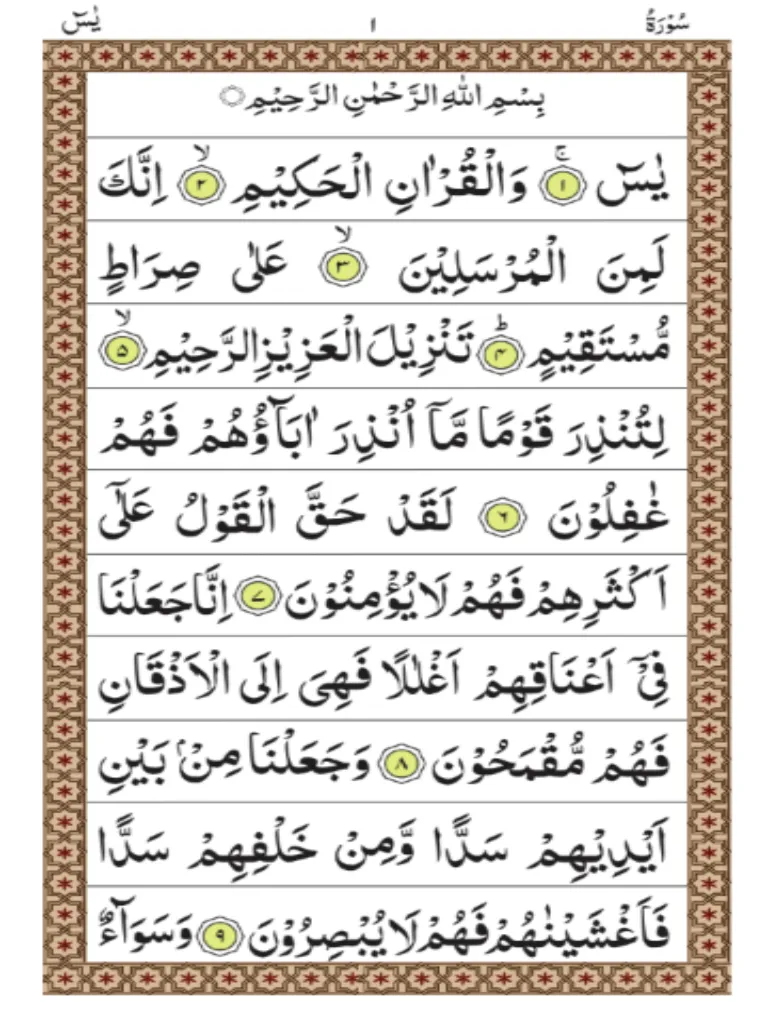 سُوْرَةُ ١ يٰسٓ
بِسْمِ اللّٰهِ الرَّحْمٰنِ الرَّحِيْمِ
يٰسٓ ۚ ﴿١﴾ وَالْقُرْاٰنِ الْحَكِيْمِ ۙ ﴿٢﴾ اِنَّكَ
لَمِنَ الْمُرْسَلِيْنَ ۙ ﴿٣﴾ عَلٰى صِرَاطٍ
مُّسْتَقِيْمٍ ؕ ﴿۴﴾ تَنْزِيْلَ الْعَزِيْزِ الرَّحِيْمِ ۙ ﴿۵﴾
لِتُنْذِرَ قَوْمًا مَّاۤ اُنْذِرَ اٰبَآؤُهُمْ فَهُمْ
غٰفِلُوْنَ ﴿٦﴾ لَقَدْ حَقَّ الْقَوْلُ عَلٰۤى
اَكْثَرِهِمْ فَهُمْ لَا يُؤْمِنُوْنَ ﴿٧﴾ اِنَّا جَعَلْنَا
فِيْۤ اَعْنَاقِهِمْ اَغْلٰلًا فَهِىَ اِلَى الْاَذْقَانِ
فَهُمْ مُّقْمَحُوْنَ ﴿٨﴾ وَجَعَلْنَا مِنْۢ بَيْنِ
اَيْدِيْهِمْ سَدًّا وَّمِنْ خَلْفِهِمْ سَدًّا
فَاَغْشَيْنٰهُمْ فَهُمْ لَا يُبْصِرُوْنَ ﴿٩﴾ وَسَوَآءٌ